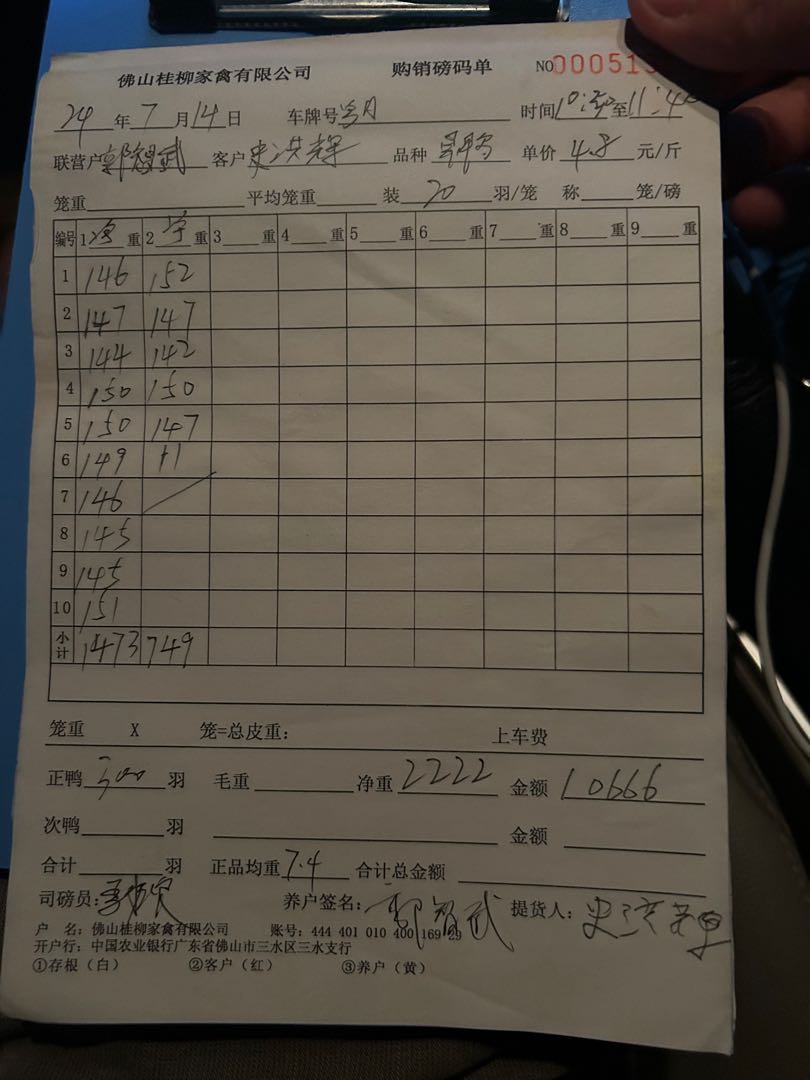 佛山桂柳家禽有限公司 购销磅码单 NO 00051
24年7月14日 车牌号 时间 至11:4
联营户郭智武 客户史洪辉 品种 单价4.8元/斤
笼重 平均笼重 装20羽/笼 称 笼/磅
编号 1净重 2净重 3 重 4 重 5 重 6 重 7 重 8 重 9 重
1 146 152
2 147 147
3 144 142
4 150 150
5 150 147
6 149 +1
7 146
8 145
9 145
10 151
小计 1473 749
笼重 X 笼=总皮重: 上车费
正鸭300羽 毛重 净重2222 金额10666
次鸭 羽 金额
合计 羽 正品均重7.4 合计总金额
司磅员: 养户签名:郭智武 提货人:史洪辉
户 名: 佛山桂柳家禽有限公司 账号: 444 401 010 400 169 29
开户行: 中国农业银行广东省佛山市三水区三水支行
①存根（白） ②客户（红） ③养户（黄）